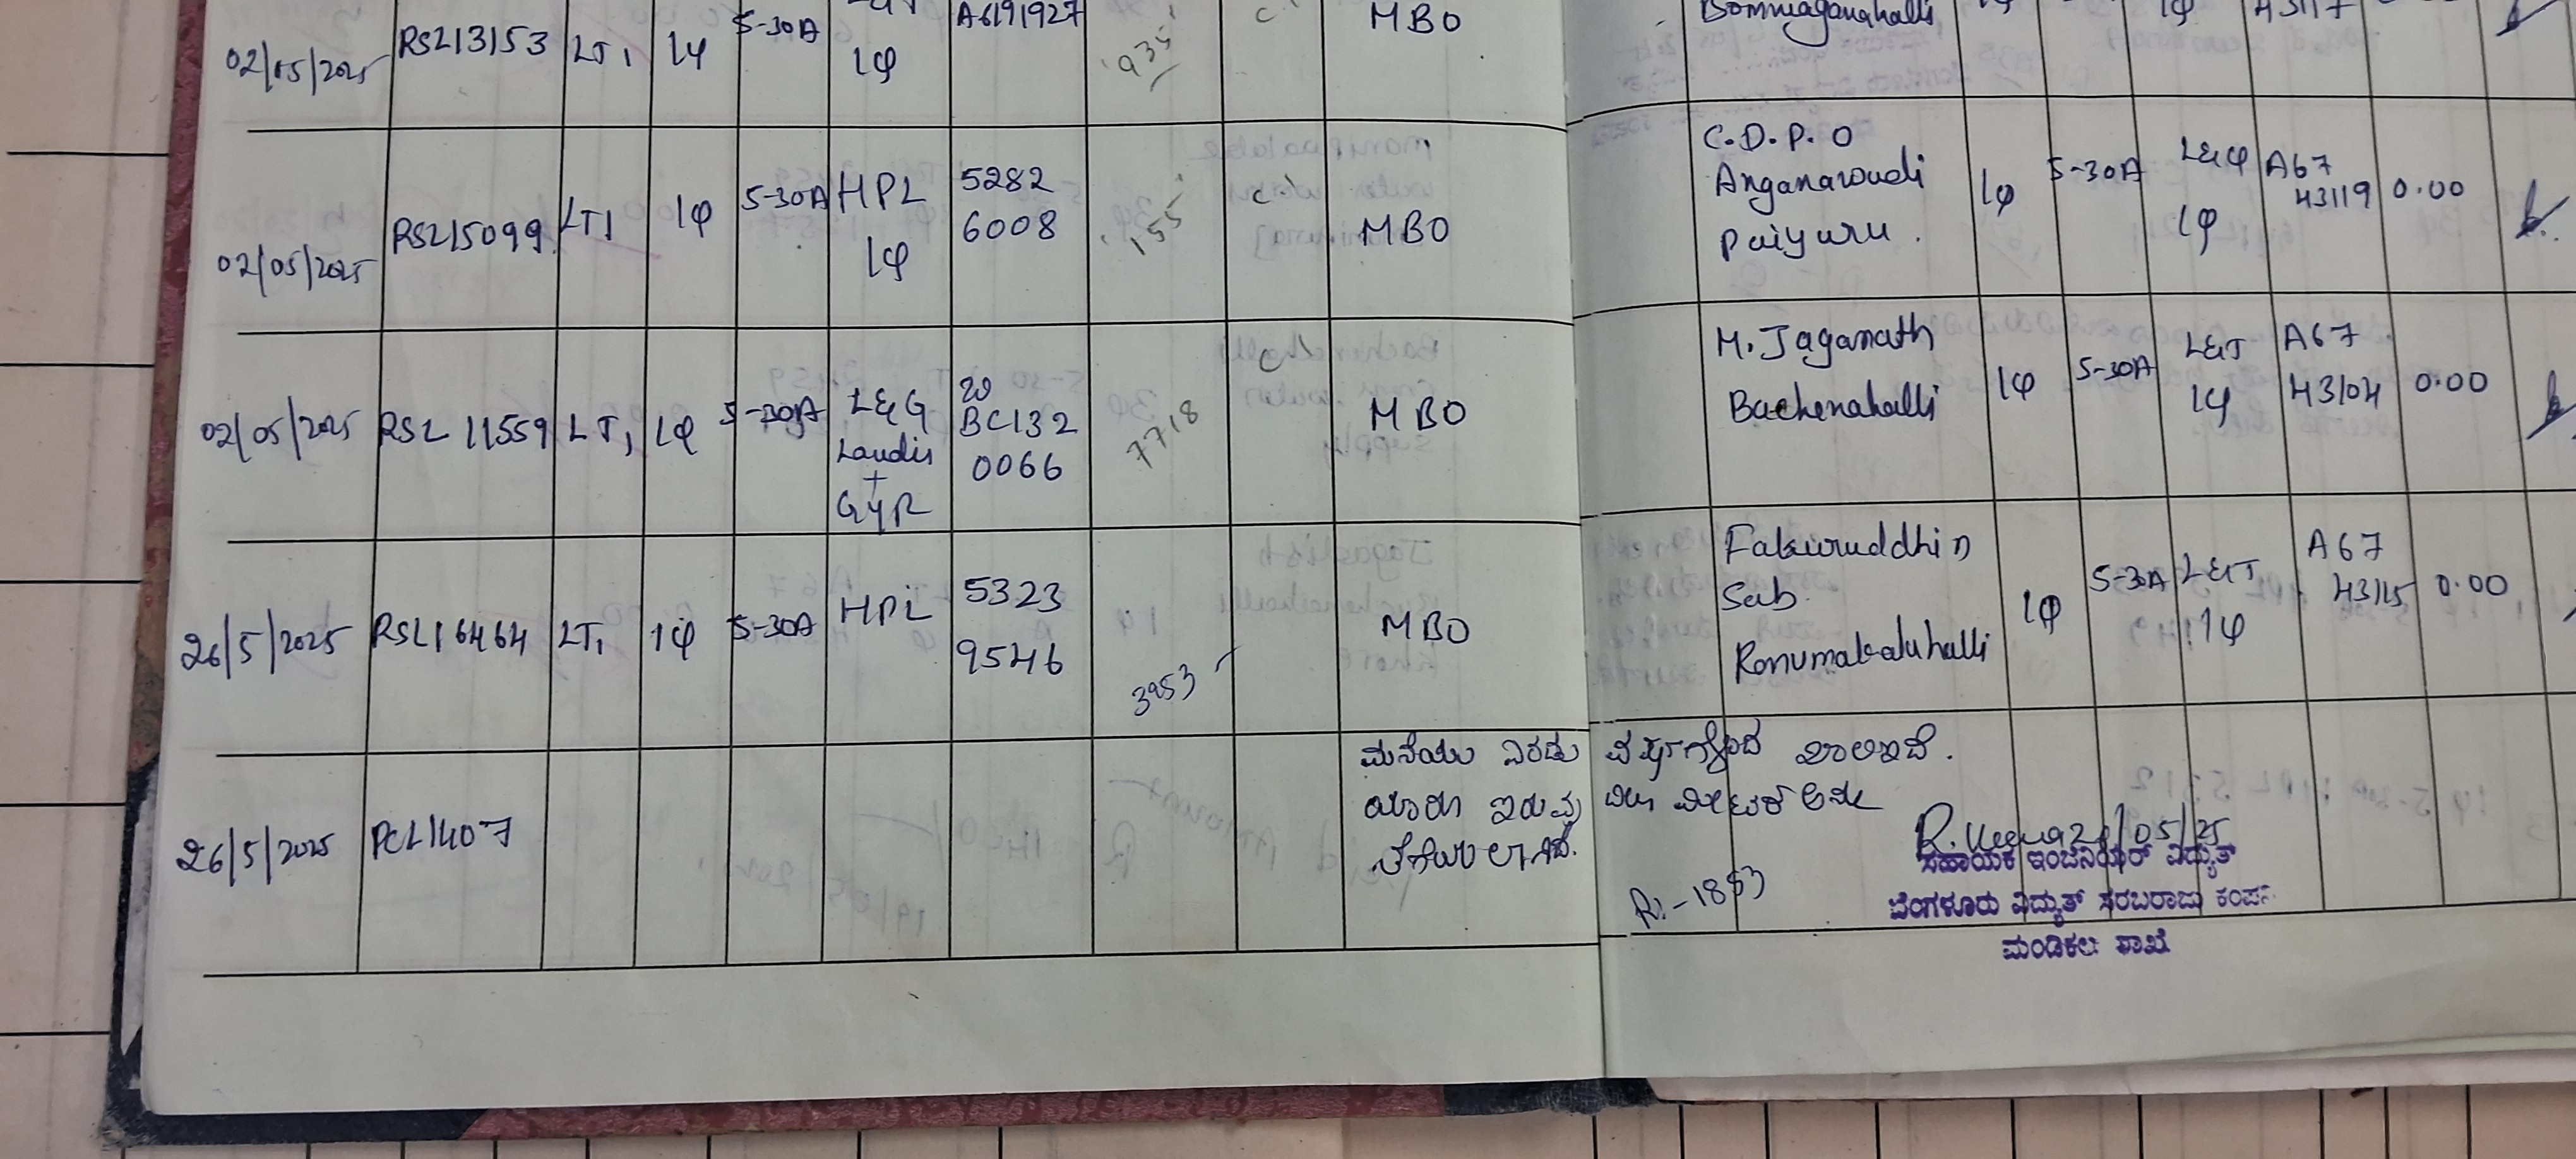 02/05/2025 RSL13153 LT1 1φ 5-30A 1φ A6191927 935 C MBO Bommaganahalli 1φ 1φ 43117
02/05/2025 RSL15099 LT1 1φ 5-30A HPL 1φ 5282 6008 155 C MBO C.D.P.O Anganawadi Paiyuru. 1φ 5-30A L&φ 1φ A67 43119 0.00
02/05/2025 RSL11559 LT1 1φ 5-30A L&G Landis + Gyr 20 BC132 0066 7718 C MBO M. Jaganath Bachenahalli 1φ 5-30A L&T 1φ A67 43104 0.00
26/5/2025 RSL16464 LT1 1φ 5-30A HPL 5323 9546 3953 MBO Fakuruddhin Sab Ronumakaluhalli 1φ 5-3A L&T 1φ A67 43115 0.00
26/5/2025 PCL1407
ಮನೆಯು ಎರಡು ವರ್ಷಗಳಿಂದ ಖಾಲಿಇದೆ.
ಯಾರು ಇರುವು ಮೀಟರ್
ತೆಗೆಯಲಾಗಿದೆ.
R:-1853
05/25
ಸಹಾಯಕ ಇಂಜಿನಿಯರ್ ವಿದ್ಯುತ್
ಬೆಂಗಳೂರು ವಿದ್ಯುತ್ ಸರಬರಾಜು ಕಂಪನಿ
ಮಂಡಿಕಲ್ಲು ಶಾಖೆ